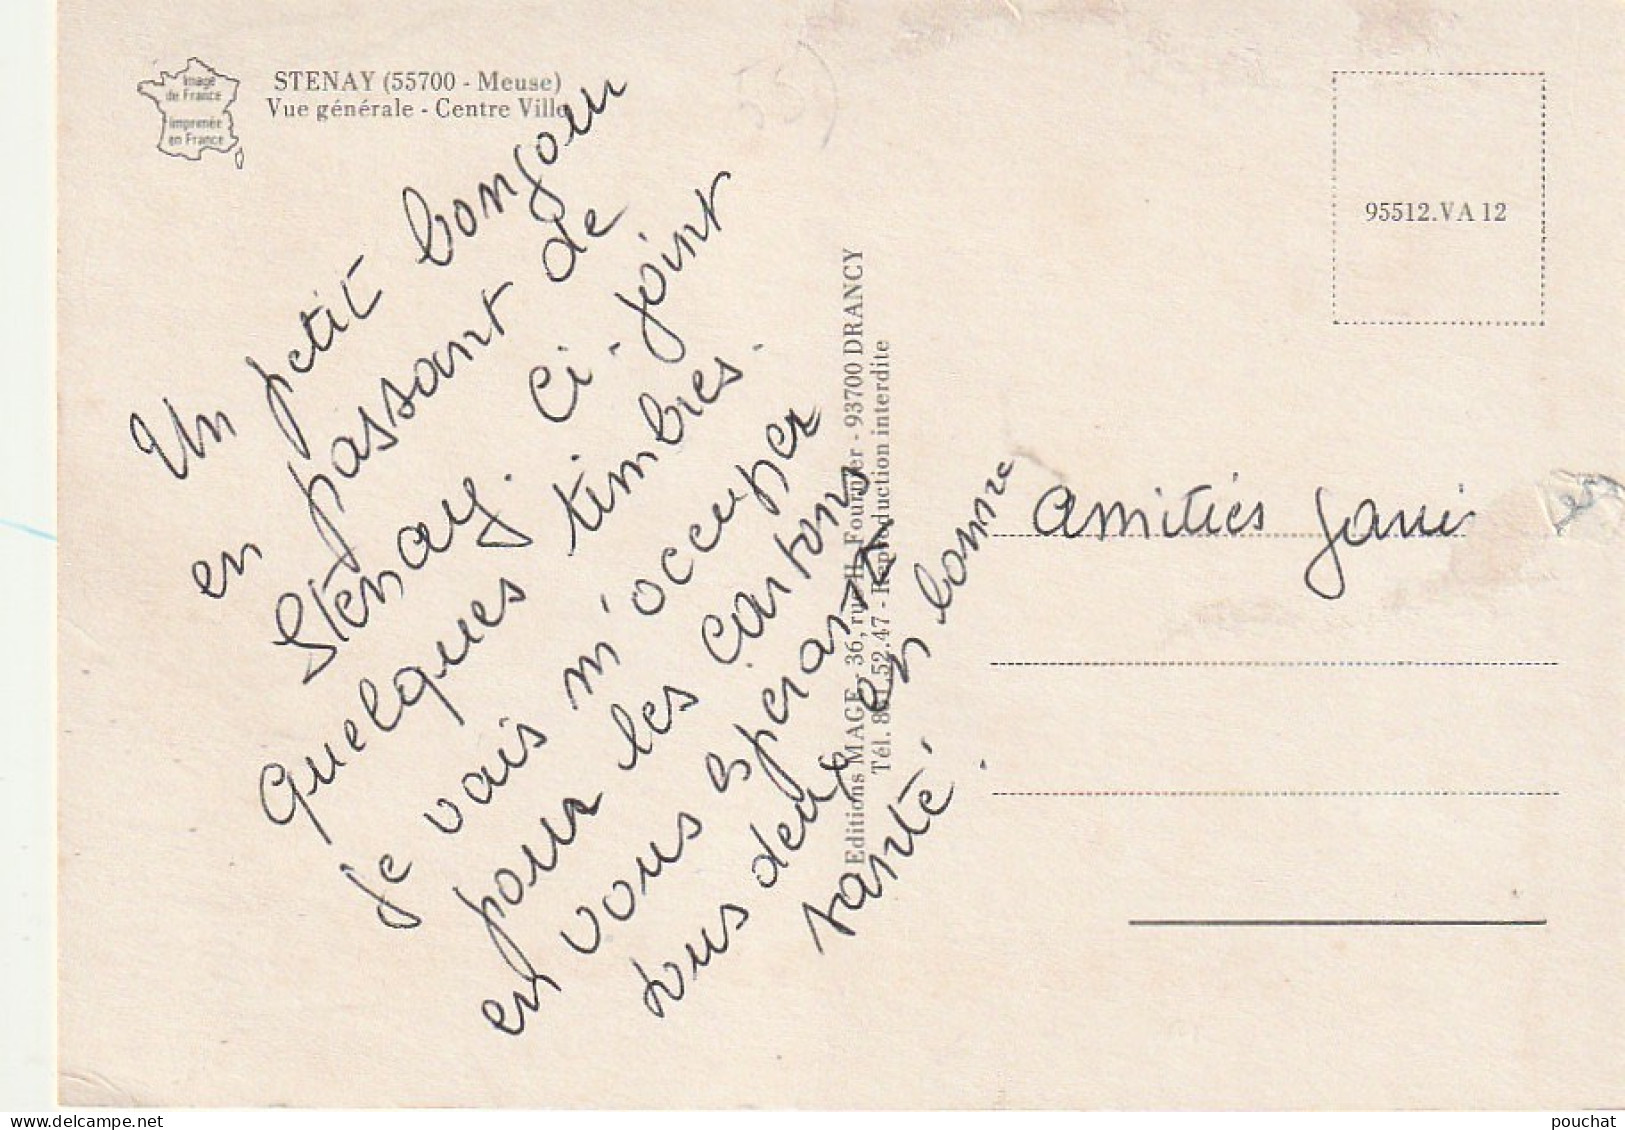 Image
de France
Imprimée
en France
STENAY (55700 - Meuse)
Vue générale - Centre Ville
55)
Un petit bonjour
en passant de
Stenay. Ci-joint
quelques timbres.
je vais m'occuper
pour les cartons
en vous espérant
tous deux en bonne
santé.
Editions MAGE - 36, rue H. Fournier - 93700 DRANCY
Tél. 831.52.47 - Reproduction interdite
95512.VA 12
Amitiés
pouchat
www.delcampe.net